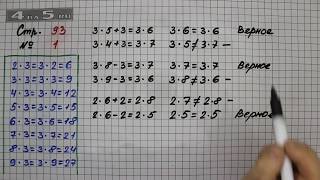 4 на 5.ru
Стр. 93
№ 1
2·3=3·2=6
3·3=3·3=9
4·3=3·4=12
5·3=3·5=15
6·3=3·6=18
7·3=3·7=21
8·3=3·8=24
9·3=3·9=27
3·5+3=3·6 3·6=3·6 Верное
3·4+3=3·7 3·5≠3·7 –
3·8-3=3·7 3·7=3·7 Верное
3·9-3=3·6 3·8≠3·6 –
2·6+2=2·8 2·7≠2·8 –
2·6-2=2·5 2·5=2·5 Верно